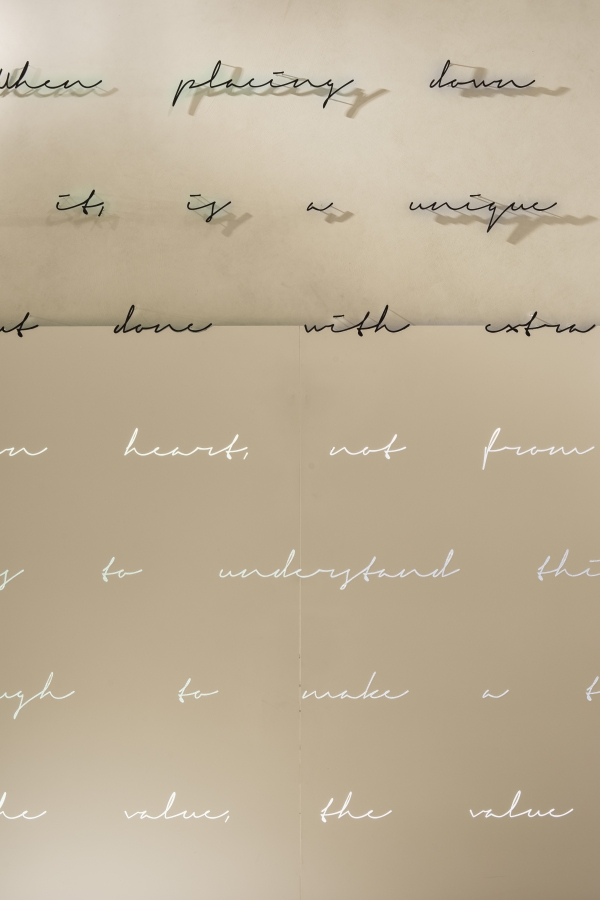 When placing down
it, is a unique
ut done with extra
n heart, not from
g to understand thi
ugh to make a t
he value, the value